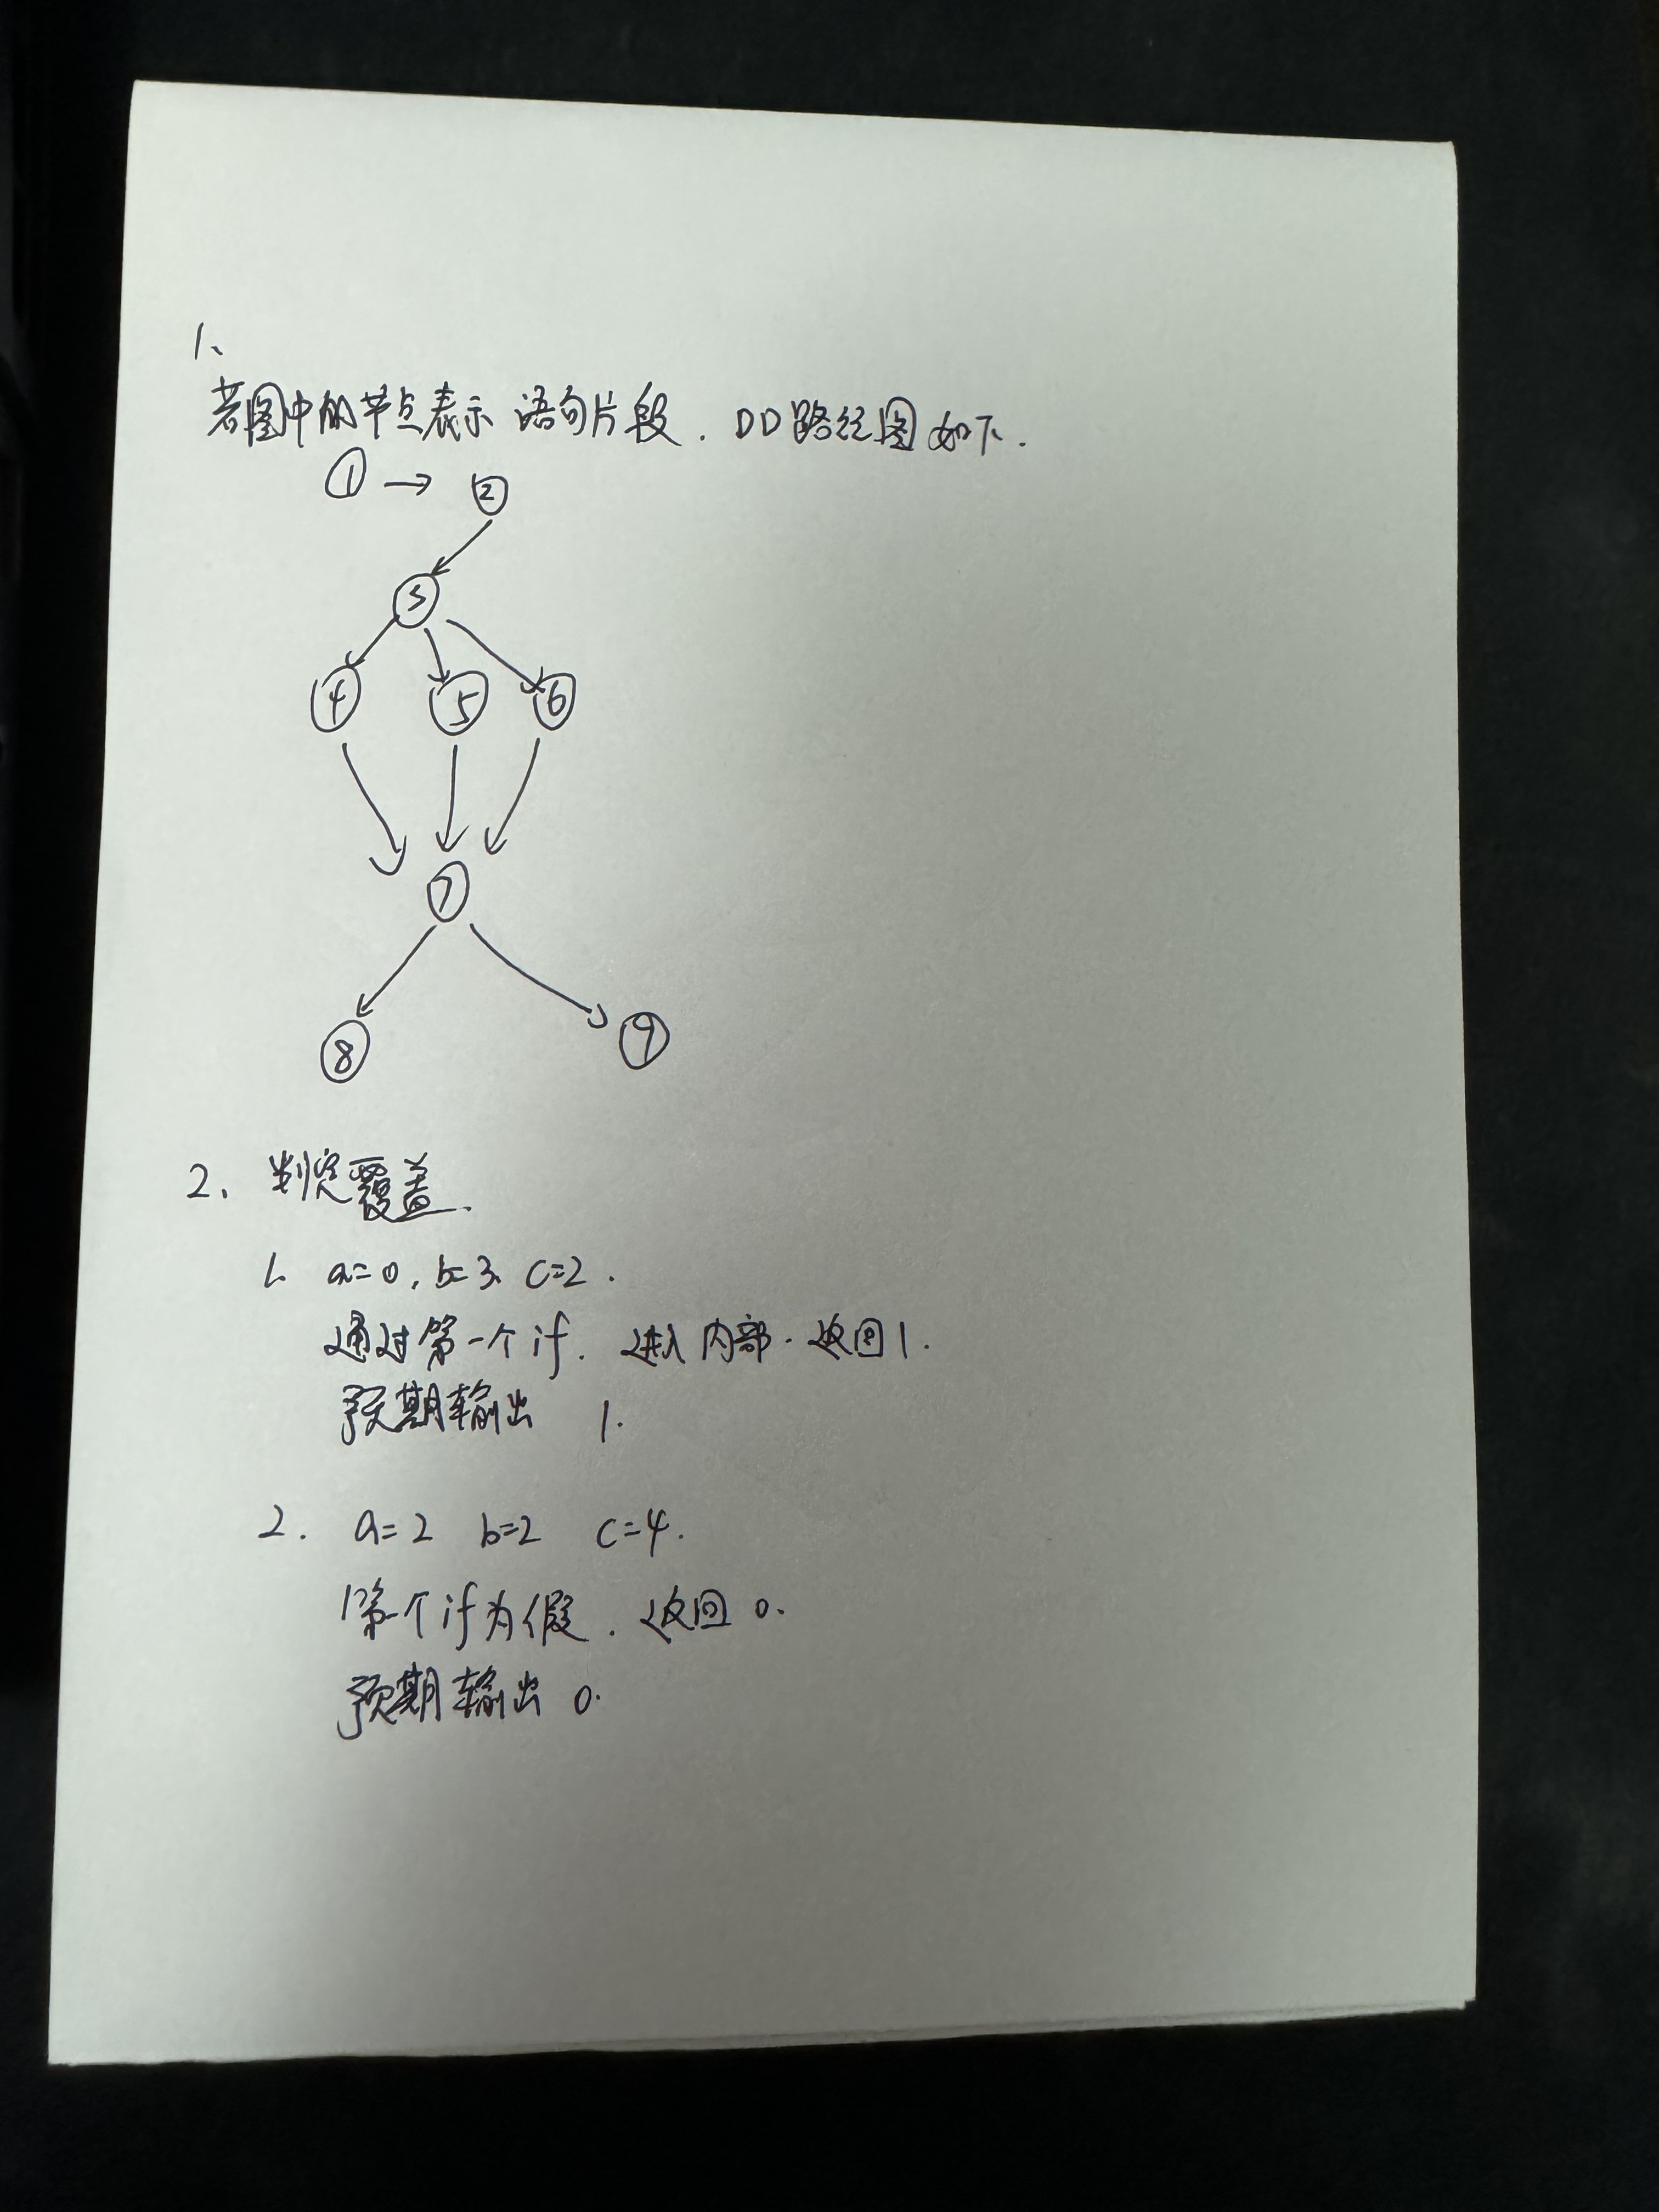 1、
若图中的节点表示 语句片段. DD路径图如下.
① → ②
③
④ ⑤ ⑥
⑦
⑧ ⑨
2、判定覆盖.
1. a=0, b=3、c=2.
通过第一个if. 进入内部. 返回1.
预期输出 1.
2. a=2 b=2 c=4.
第一个if为假. 返回 0.
预期输出 0.